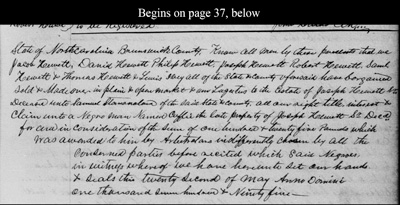 Begins on page 37, below
to be Registered
State of North Carolina Brunswick County. Know all men by these presents that we
Jacob Hewett, David Hewett Philip Hewett Joseph Hewett Robert Hewett Saml
Hewett & Thomas Hewett & Lewis all of the State & County aforesaid have bargained
Sold & Made over in plain & open market & our Legatees to the Estate of Joseph Hewett
Deceased unto Samuel of the said State & County all our right title interest &
Claim unto a Negro Named the late property of Joseph Hewett Sr Decd
for and in Consideration of the sum of one hundred & twenty five Pounds which
was awarded to him by Arbitrators indifferently chosen by all the
Concerned parties before recited which said Negroes
in witness whereof we have hereunto set our hands
& Seals this twenty second of May Anno Domini
one thousand seven hundred & Ninety five